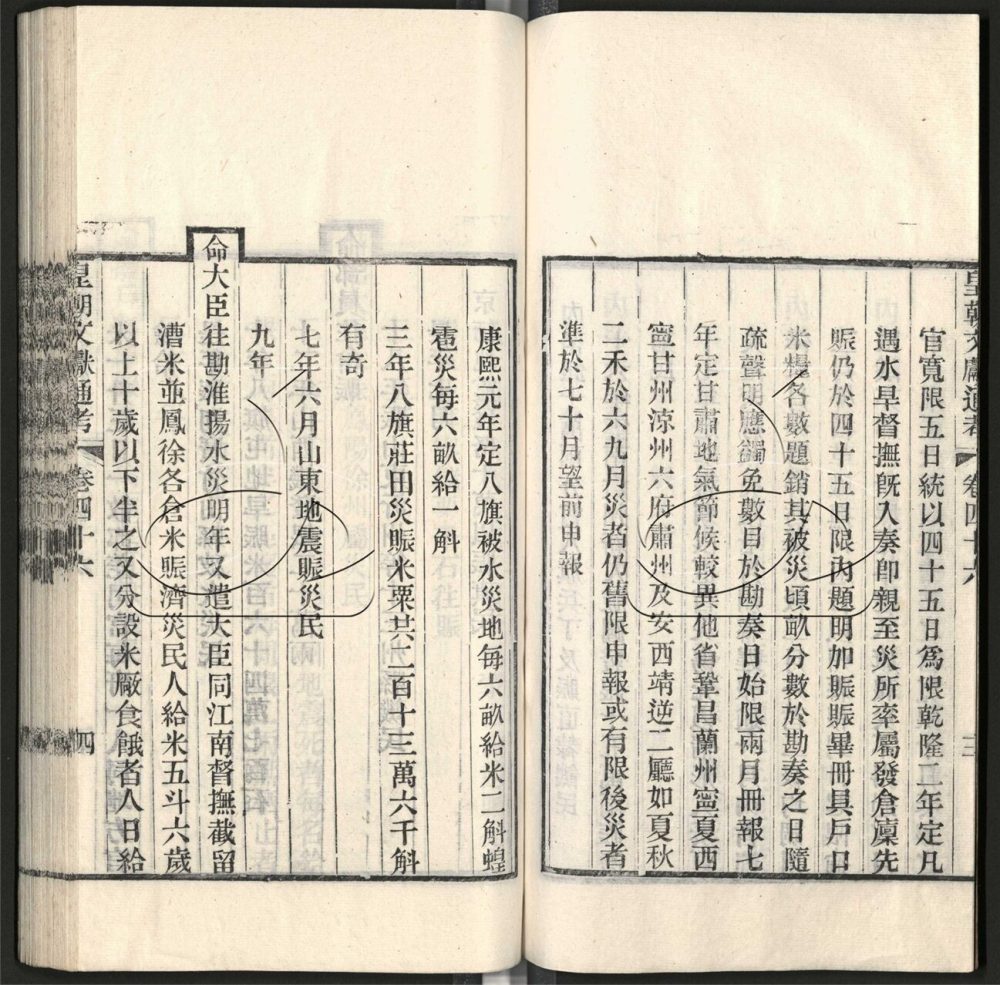 官寬限五日統以四十五日為限乾隆二年定凡
遇水旱督撫旣入奏卽親至災所率屬發倉廩先
賑仍於四十五日限內題明加賑賑畢冊具戶口
米糧各數題銷其被災頃畝分數於勘奏之日隨
疏聲明應蠲免數目於勘奏日始限兩月冊報七
年定甘肅地氣節候較異他省鞏昌蘭州寧夏西
寧甘州涼州六府肅州及安西靖逆二廳如夏秋
二禾於六九月災者仍舊限申報或有限後災者
準於七十月望前申報
皇朝文獻通考 卷四十六 三
康熙元年定八旗被水災地每六畝給米二斛蝗
雹災每六畝給一斛
三年八旗莊田災賑米粟共二百十三萬六千斛
有奇
七年六月山東地震賑災民
九年
命大臣往勘淮揚水災明年又遣大臣同江南督撫截留
漕米並鳳徐各倉米賑濟災民人給米五斗六歲
以上十歲以下半之又分設米厰食餓者人日給
皇朝文獻通考 卷四十六 四